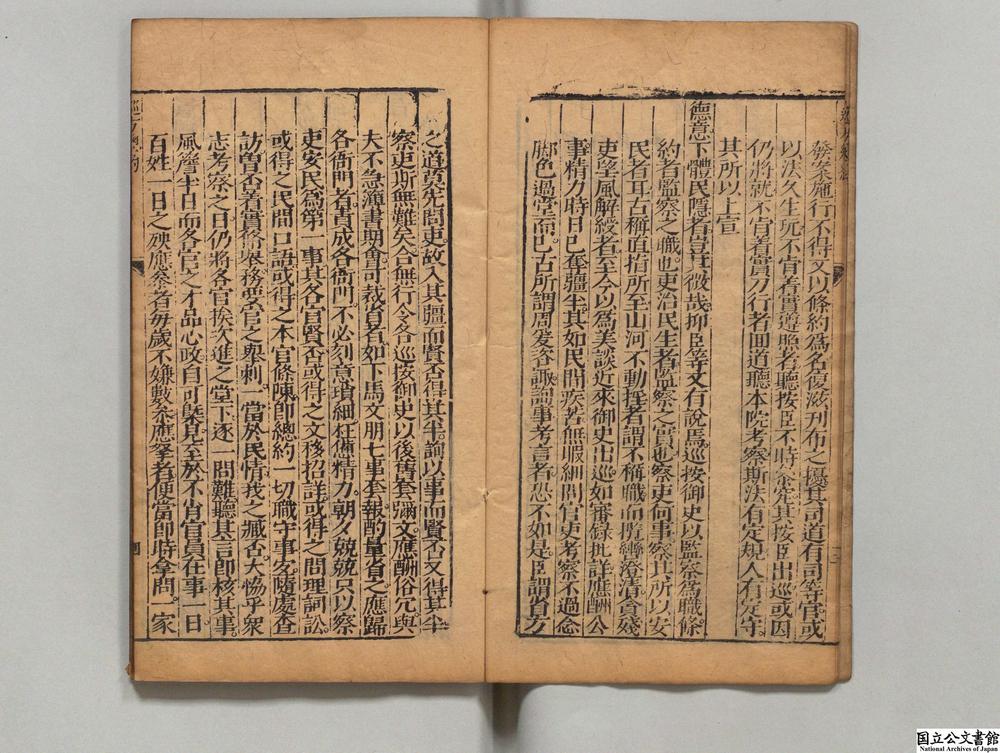 發奉施行不得又以條約爲名復滋刋布之擾其司道有司等官或
以法久生玩不肯着實遵照者聽按臣不時叅究其按臣出巡或因
仍將就不肯着實力行者囬道聽本院考察斯法有定規人有定守
其所以上宣
德意下體民隱者豈其微哉抑臣等又有說焉巡按御史以監察爲職條
約者監察之職也吏治民生者監察之實也察吏何事察其所以安
民者耳古稱直指所至山河不動揺者謂不稱職而攬轡澄清貪殘
吏望風解綬者至今以爲美談近來御史出巡如審錄批詳應酬公
事精力時日已奪彊半其如民間疾苦無暇細問官吏考察不過念
脚色過堂而已古所謂周爰咨諏詢事考言者恐不如是臣謂省方
之道莫先問吏故入其疆而賢否得其半詢以事而賢否又得其半
察吏斯無難矣合無行令各巡按御史以後舊套彌文應酬俗冗與
夫不急簿書期會可裁省者如下馬文册七事套報酌量省之應歸
各衙門者責成各衙門不必刻意瑣細枉憊精力朝夕兢兢只以察
吏安民爲第一事其各官賢否或得之文移招詳或得之問理詞訟
或得之民間口語或得之本官條陳卽總約一切職守事宐隨處查
訪曾否着實修舉務要官之舉刺一當於民情我之臧否大恊乎衆
志考察之日仍將各官挨次進之堂下逐一問難聽其言卽核其事
風簷半日而各官之才品心政自可槩見至於不肖官員在事一日
百姓一日之殃應叅者毋歲不嫌數叅應拏者便當卽時拿問一家
國立公文書館
National Archives of Japan